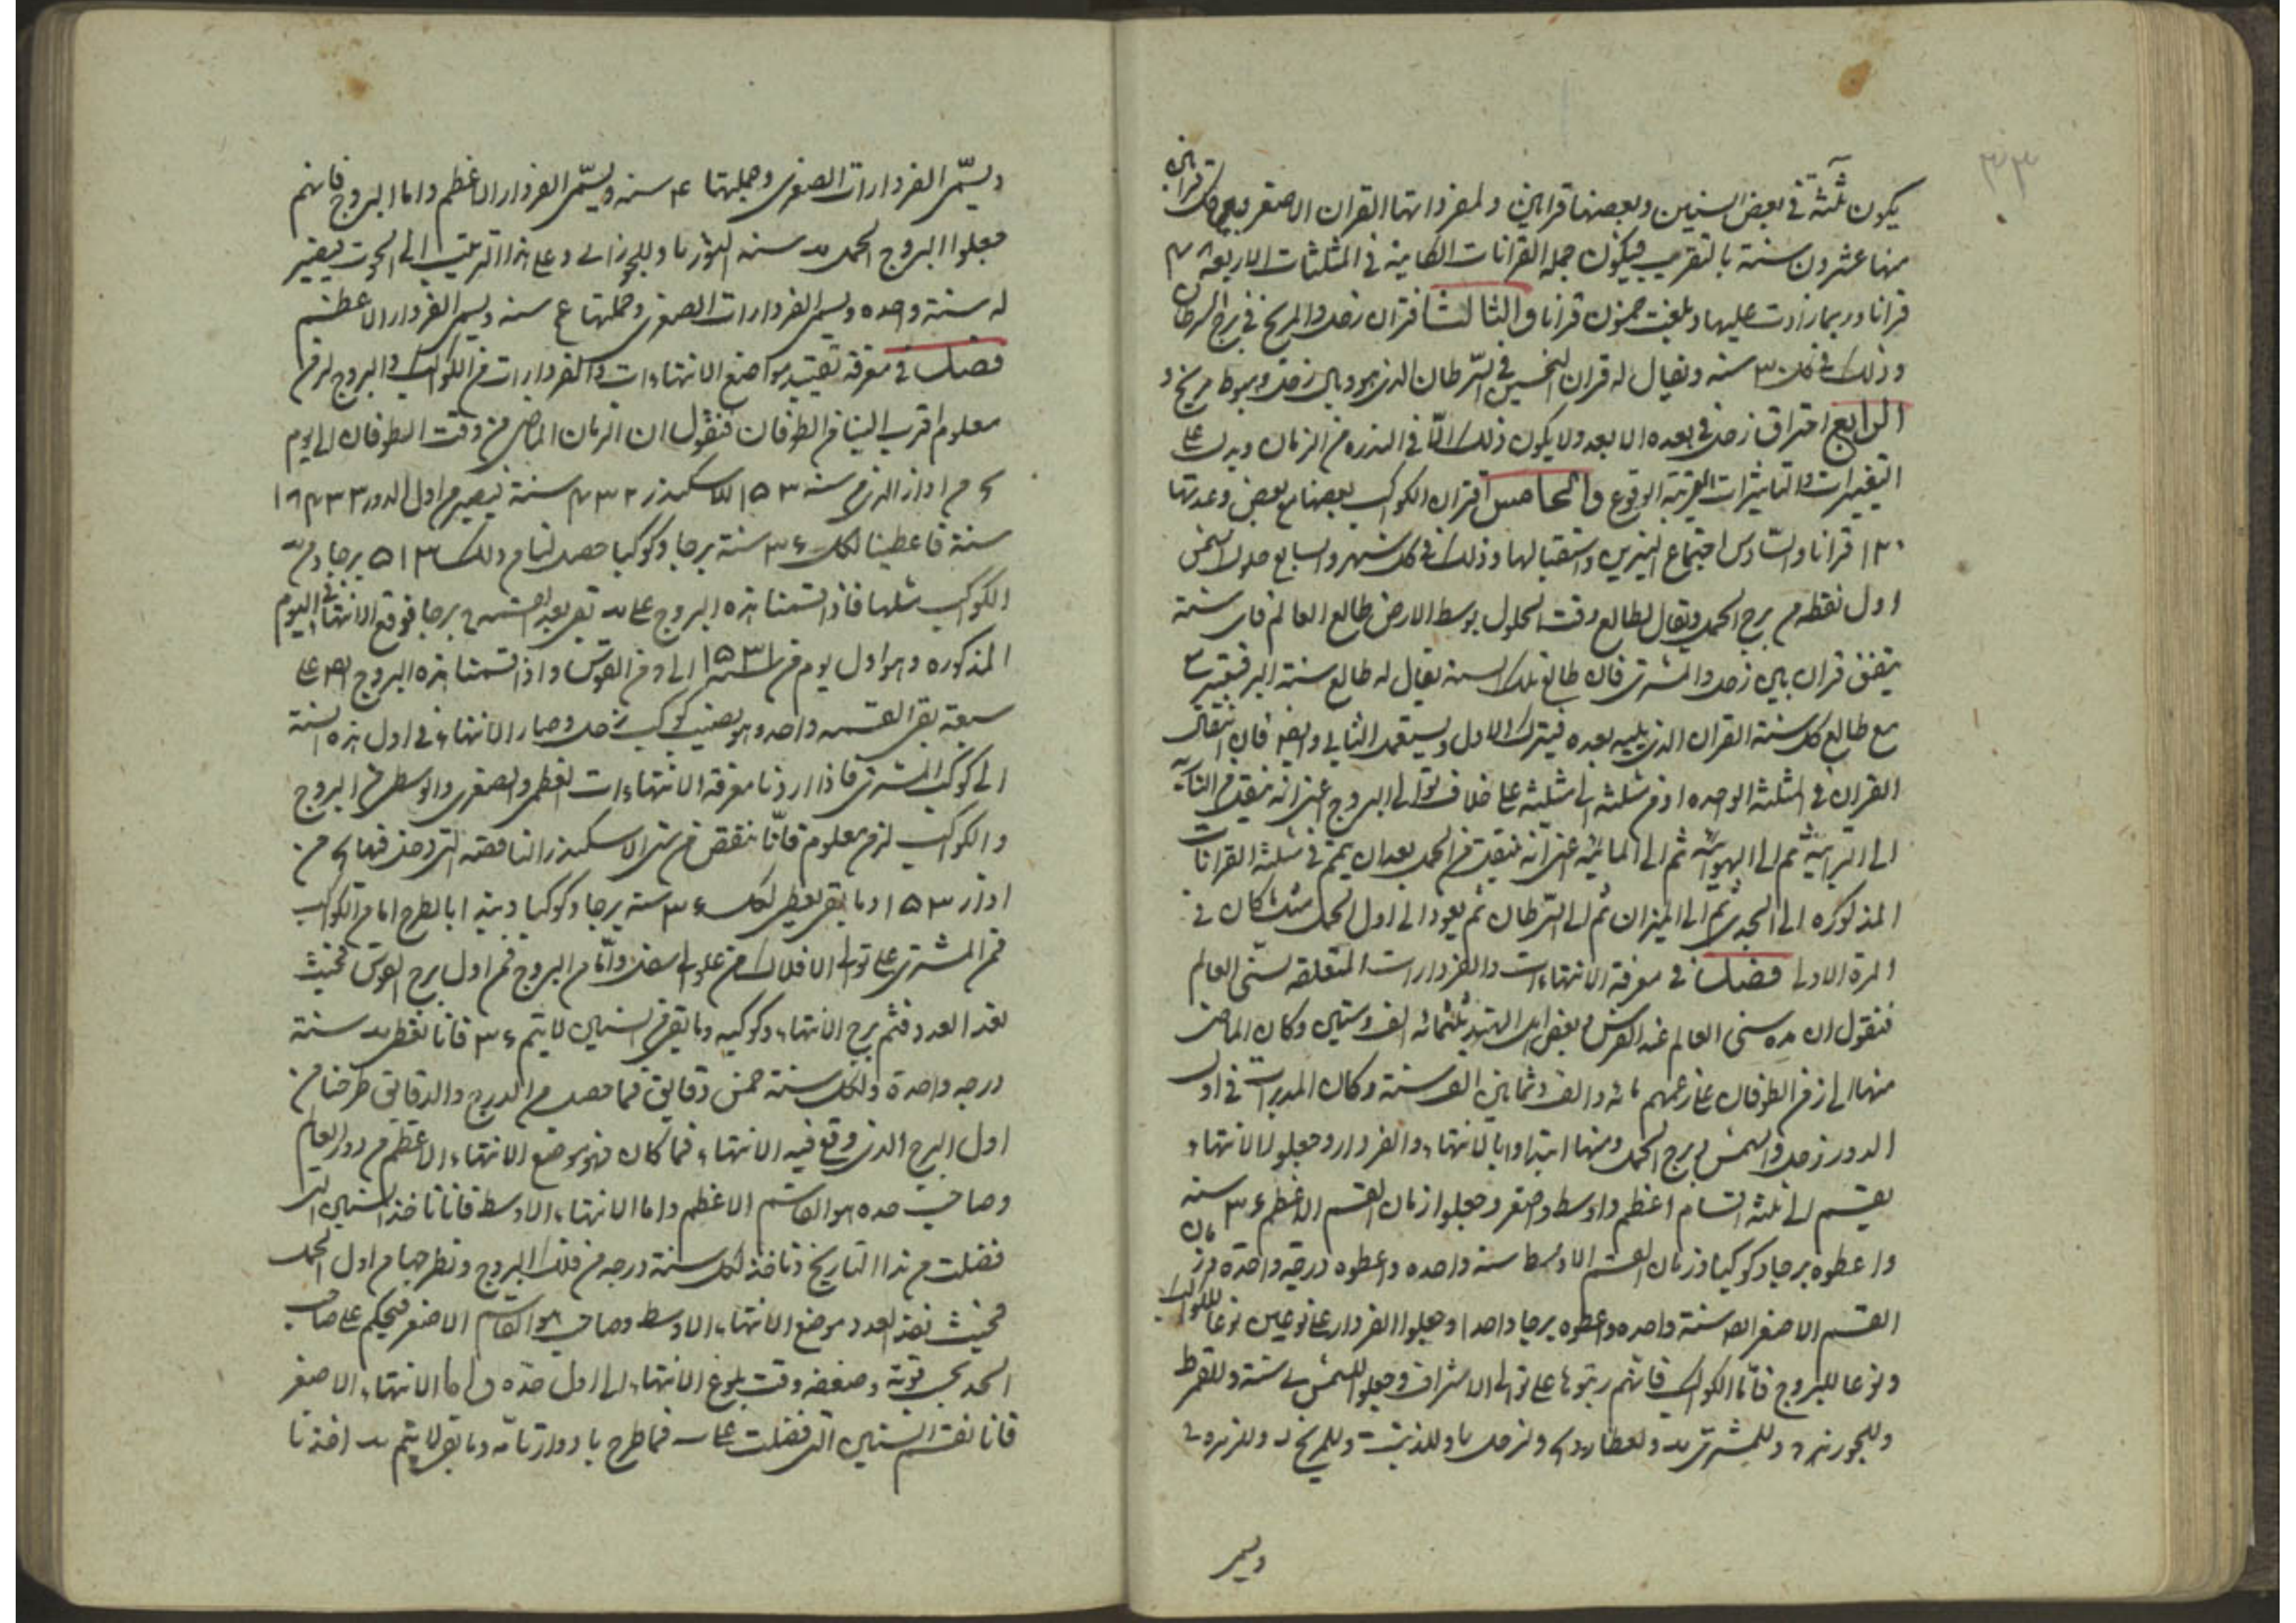 ٣٣
يكون ثلثة في بعض السنين وبعضها قرانين ولمفرداتها القران الاصغر بين كل قرانين
منها عشرون سنة بالتقريب فيكون جملة القرانات الكاينة في المثلثات الاربعة
قرانا وربما زادت عليها وبلغت خمسون قرانا والثالث اقتران زحل والمريخ في برج السرطان
وذلك في كل ٣٠ سنة ويقال له قران النحسين في السرطان الذي هو وبال زحل وهبوط مريخ و
الرابع احتراق زحل في بعده الابعد ولا يكون ذلك الّا في الندرة من الزمان ويدل على
التغييرات والتاثيرات القريبة الوقوع والخامس اقتران الكواكب بعضها مع بعض وعدتها
١٢٠ قرانا والسّادس اجتماع النيرين واستقبالها وذلك في كل شهر والسابع حلول الشمس
اول نقطه من برج الحمل ويقال لطالع وقت الحلول بوسط الارض طالع العالم فاى سنة
يتفق قران بين زحل والمشترى فان طالع تلك السنة يقال له طالع سنة القران فيعتبر
مع طالع كل سنة القران الذى يليه بعده فيترك الاول ويستعمل الثاني وايضا فان انتقال
القران في المثلثة الواحده او من مثلثة الى مثلثة على خلاف توالى البروج اعنى انه ينتقل من النارية
الى الترابية ثم الى الهوائية ثم الى المائية اعنى انه ينتقل من الحمل بعد ان يتم في مثلثة القرانات
المذكوره الى الجدى ثم الى الميزان ثم الى السرطان ثم يعود الى اول الحمل مثل ما كان في
المرة الاولى فصل في معرفة الانتهاءات والفردارات المتعلقه بسنى العالم
فنقول ان مدة سنى العالم عند الفرس وبعض اهل الهند ثلثمائه الف وستين وكان الماضى
منها الى زمن الطوفان على زعمهم مائه والف وثمانين الف سنة وكان المدبرات في اول
الدور زحل والشمس في برج الحمل ومنها ابتداوا بالانتهاء والفردار وجعلوا الانتهاء
يقسم الى ثلثة اقسام اعظم واوسط واصغر وجعلوا زمان القسم الاعظم ٣٦٠ سنه
واعطوه برجا وكوكبا وزمان القسم الاوسط سنة واحده واعطوه درجة واحدة وزمان
القسم الاصغر ايضا سنة واحده واعطوه برجا واحدا وجعلوا الفردار على نوعين نوعا للكواكب
ونوعا للبروج فامّا الكواكب فانهم رتبوها على توالى الاشراف وجعلوا للشمس سنة وللقمر
وللجوزهر وللمشترى وللعطارد ولزحل وللذنب وللمريخ وللزهرة
ويسمى
ويسمّى الفردارات الصغرى وجملتها سنه ويسمّى الفردار الاعظم واما البروج فانهم
جعلوا البروج الحمل سنه الثور وللجوزا وعلى هذا الترتيب الى الحوت فيصير
له سنة واحده ويسمى الفردارات الصغرى وجملتها سنه ويسمى الفردار الاعظم
فصل في معرفة تقييد مواضع الانتهاءات والفردارات من الكواكب والبروج لزمن
معلوم اقرب الينا من الطوفان فنقول ان الزمان الماضى من وقت الطوفان الى يوم
من اذار الذى من سنه ١٥٣١ للاسكندر سنة فيصير من اول الدور
سنة فاعطينا لكل ٣٦٠ سنة برجا وكوكبا حصل لنا من ذلك ٥١٣ برجا ومن
الكواكب مثلها فاذا قسمنا هذه البروج على بقى بعد القسمة برجا فوقع الانتهاء في اليوم
المذكوره وهو اول يوم من سنه ١٥٣١ الى من القوس واذا قسمنا هذه البروج ايضا على
سبعة بقى القسمه واحد وهو نصيب كوكب زحل وصار الانتهاء في اول هذه السنة
الى كوكب المشترى فاذا اردنا معرفة الانتهاءات العظمى والصغرى والوسطى من البروج
والكواكب لزمن معلوم فانّا ننقص من سنى الاسكندر الناقصه التى دخل فيها من
اذار ١٥٣١ وما بقى يعطى لكل ٣٦٠ سنة برجا وكوكبا ونبتدا بالطرح اما من الكواكب
فمن المشترى على توالى الافلاك من علو الى سفل وامّا من البروج فمن اول برج القوس فحيث
نفد العدد فثم برج الانتهاء وكوكبه وما بقى من السنين لا يتم ٣٦٠ فانا نعطى سنة
درجه واحدة ولكل سنة خمس دقايق فما حصل من الدرج والدقايق طرحنا من
اول البرج الذى وقع فيه الانتهاء فما كان فهو موضع الانتهاء الاعظم من دور العالم
وصاحب حده هو القاسم الاعظم واما الانتهاء الاوسط فانا ناخذ السنين التى
فضلت من هذا التاريخ وناخذ لكل سنة درجه من فلك البروج ونطرحها من اول الحمل
فحيث نفد العدد موضع الانتهاء الاوسط وصاحب هو القاسم الاصغر فيحكم على صاحب
الحد بحسب قوته وضعفه وقت بلوغ الانتهاء الى اول حدّه واما الانتهاء الاصغر
فانا نقسم السنين التى فضلت على فما طرح بادوار تامّه وما بقى لا يتم اخذنا